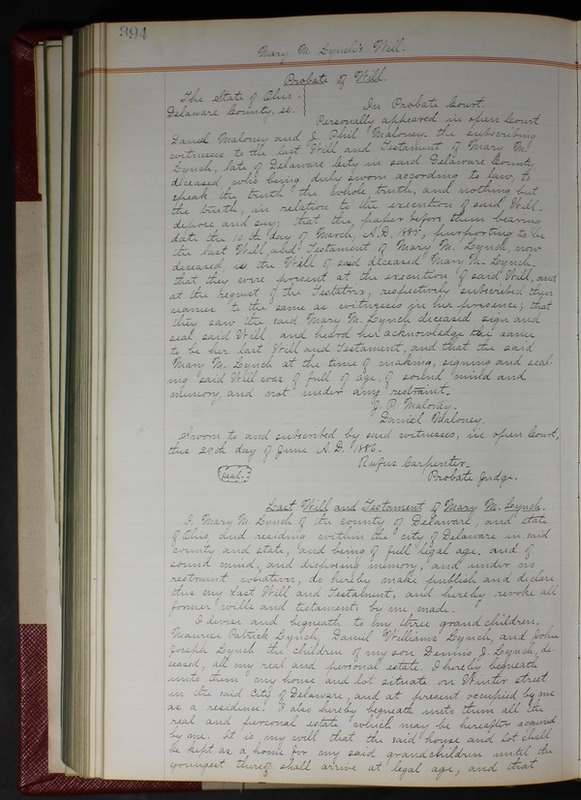 394
Mary M. Lynch's Will.
Probate of Will.
The State of Ohio
Delaware County, ss. In Probate Court.
Personally appeared in open Court
Daniel Maloney and J. Phil Maloney, the subscribing
witnesses to the last Will and Testament of Mary M.
Lynch, late of Delaware City in said Delaware County
deceased, who being duly sworn according to law, to
speak the truth the whole truth, and nothing but
the truth, in relation to the execution of said Will
depose and say; that the paper before them bearing
date the 10th day of March, A.D. purporting to be
the last Will and Testament of Mary M. Lynch now
deceased, is the Will of said deceased Mary M. Lynch
that they were present at the execution of said Will, and
at the request of the Testatrix, respectively subscribed their
names to the same as witnesses in her presence; that
they saw the said Mary M. Lynch deceased sign and
seal said Will, and heard her acknowledge the same
to be her last Will and Testament, and that the said
Mary M. Lynch at the time of making, signing and seal-
ing said Will was of full of age, of sound mind and
memory, and not under any restraint.
J. P. Maloney.
Daniel Maloney
Sworn to and subscribed by said witnesses, in open Court,
this 29th day of June A.D. 1886.
Rufus Carpenter.
Seal. Probate Judge.
Last Will and Testament of Mary M. Lynch.
I, Mary M. Lynch of the county of Delaware, and state
of Ohio, and residing within the city of Delaware in said
county and state, and being of full legal age, and of
sound mind, and disposing memory, and under no
restraint whatever, do hereby make publish and declare
this my Last Will and Testament, and hereby revoke all
former wills and testaments by me made.
I devise and bequeath to my three grand children,
Maurice Patrick Lynch, Daniel Williams Lynch, and John
Joseph Lynch the children of my son Dennis J. Lynch, de-
ceased, all my real and personal estate. I hereby bequeath
unto them my house and lot situate on Winter street
in the said City of Delaware, and at present occupied by me
as a residence. I also hereby bequeath unto them all the
real and personal estate which may be hereafter acquired
by me. It is my will that the said house and lot shall
be kept as a home for my said grandchildren until the
youngest thereof shall arrive at legal age, and that